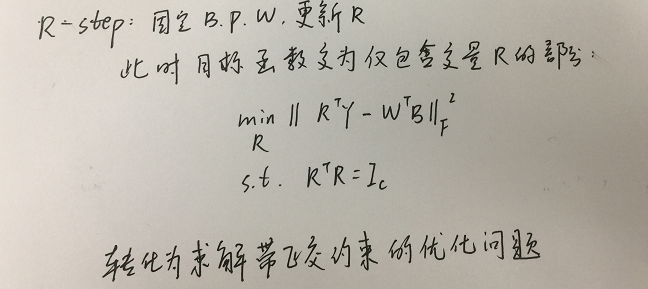 R-step: 固定 B.P.W. 更新 R
此时目标函数变为仅包含变量 R 的部分:
min ‖ RᵀY - WᵀB‖_F²
R
s.t. RᵀR = I_c
转化为求解带正交约束的优化问题